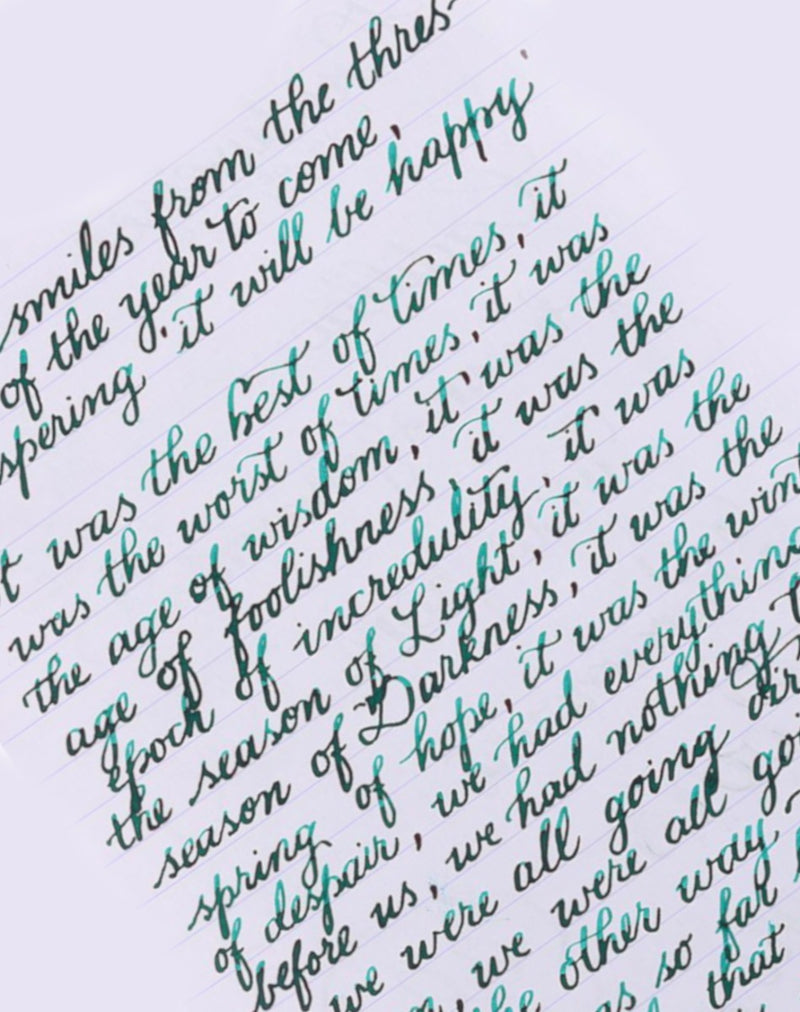 smiles from the thres-
of the year to come,
spering 'it will be happy'
was the best of times, it
was the worst of times, it was
the age of wisdom, it was the
age of foolishness, it was the
epoch of incredulity, it was
the season of Light, it was the
season of Darkness, it was the
spring of hope, it was the
of despair, we had everything
before us, we had nothing
we were all going
we were all
the other way
so far
that